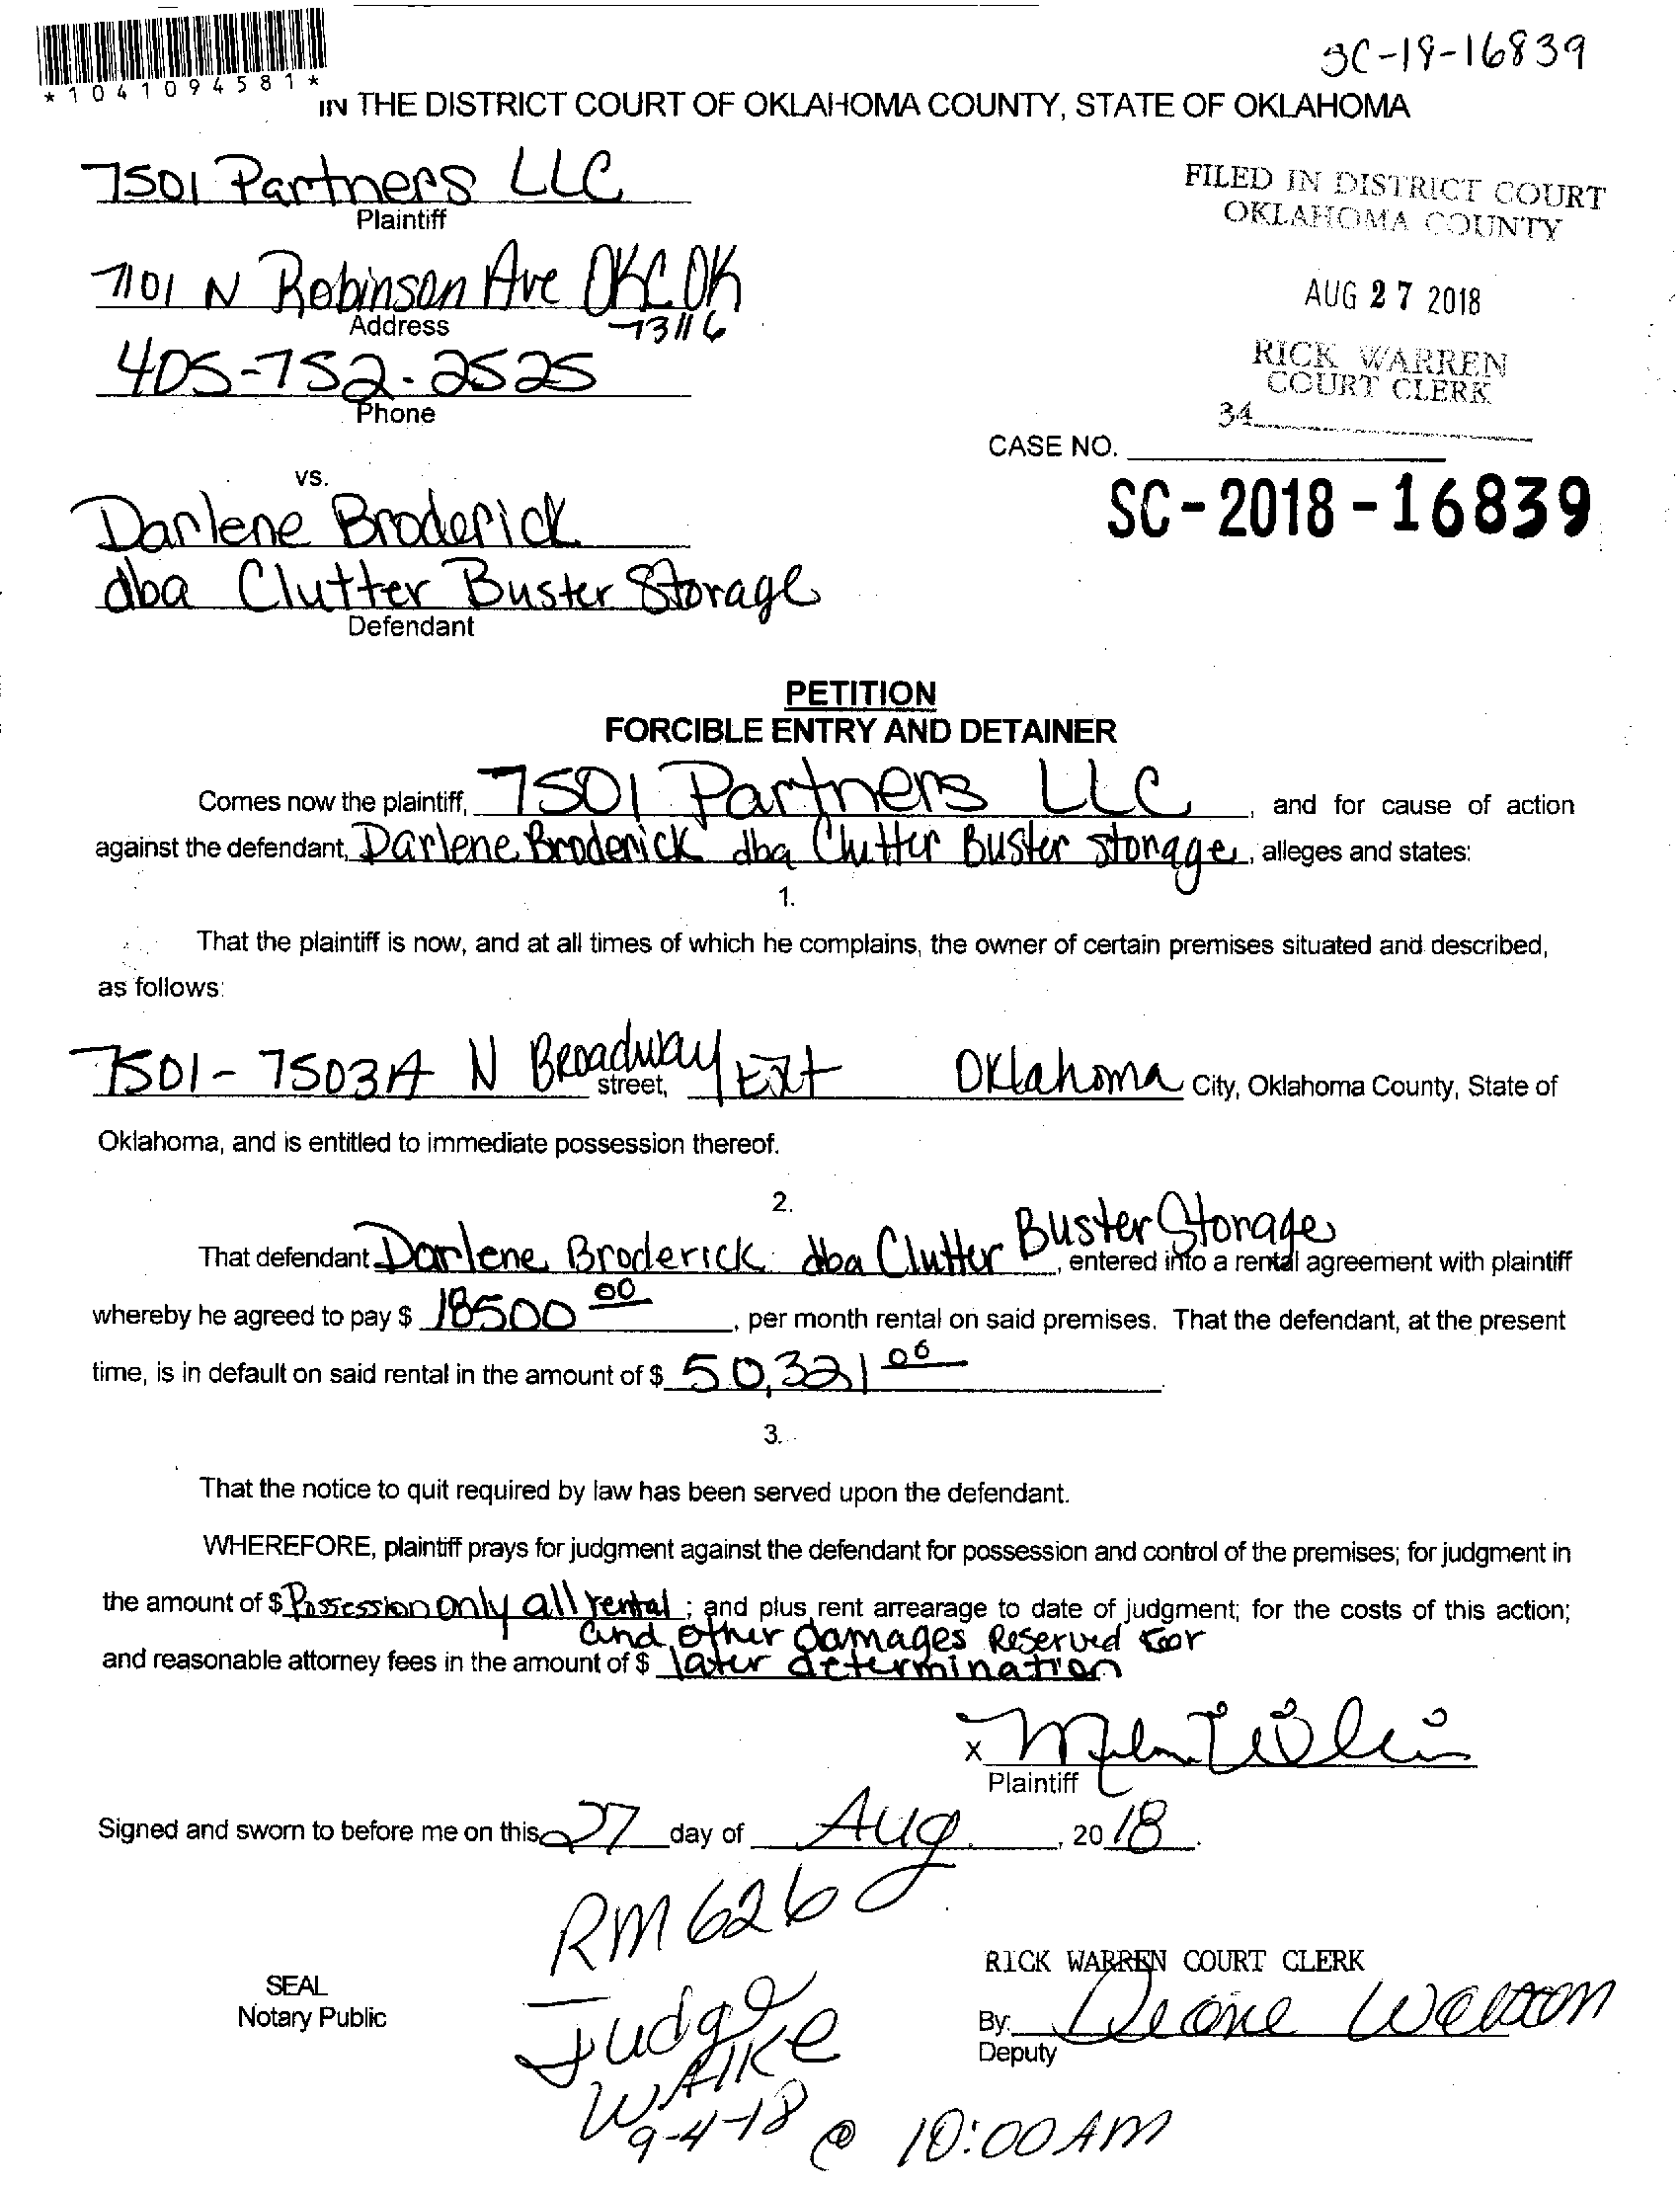 *1041094581*
SC-18-16839
IN THE DISTRICT COURT OF OKLAHOMA COUNTY, STATE OF OKLAHOMA
7501 Partners LLC
Plaintiff
FILED IN DISTRICT COURT
OKLAHOMA COUNTY
7101 N Robinson Ave OKC OK
Address
73116
AUG 27 2018
405-752-2525
Phone
RICK WARREN
COURT CLERK
34
CASE NO.
vs.
SC-2018-16839
Darlene Broderick
dba Clutter Buster Storage
Defendant
PETITION
FORCIBLE ENTRY AND DETAINER
Comes now the plaintiff, 7501 Partners LLC, and for cause of action
against the defendant, Darlene Broderick dba Clutter Buster Storage, alleges and states:
1.
That the plaintiff is now, and at all times of which he complains, the owner of certain premises situated and described,
as follows:
7501-7503A N Broadway Ext street, Oklahoma City, Oklahoma County, State of
Oklahoma, and is entitled to immediate possession thereof.
2.
That defendant Darlene Broderick dba Clutter Buster Storage, entered into a rental agreement with plaintiff
whereby he agreed to pay $ 18500 00, per month rental on said premises. That the defendant, at the present
time, is in default on said rental in the amount of $ 50,321 06
3.
That the notice to quit required by law has been served upon the defendant.
WHEREFORE, plaintiff prays for judgment against the defendant for possession and control of the premises; for judgment in
the amount of $ Possession only all rental; and plus rent arrearage to date of judgment; for the costs of this action;
and other damages Reserved for
and reasonable attorney fees in the amount of $ later determination
X
Plaintiff
Signed and sworn to before me on this 27 day of Aug, 2018.
RM 626
SEAL
Notary Public
RICK WARREN COURT CLERK
Judge
By:
Deputy
9-4-18 @ 10:00 AM